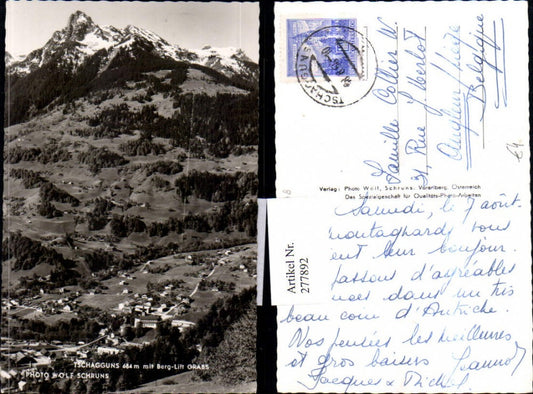 TSCHAGGUNS 684 m mit Berg-Lift GRABS
PHOTO WOLF SCHRUNS
TSCHAGGUNS
Famille Collier W.
31, Rue J. Merlot
Belgique
€4
Verlag: Photo Wolf, Schruns, Vorarlberg, Österreich
Das Spezialgeschäft für Qualitäts-Photo-Arbeiten
Artikel Nr.
277892
Samedi, le 7 août
montagnards vous
ont leur bonjour.
passons d'agréables
dans un très
beau coin d'Autriche.
Nos pensées les meilleures
et gros baisers
Jacques & Michel